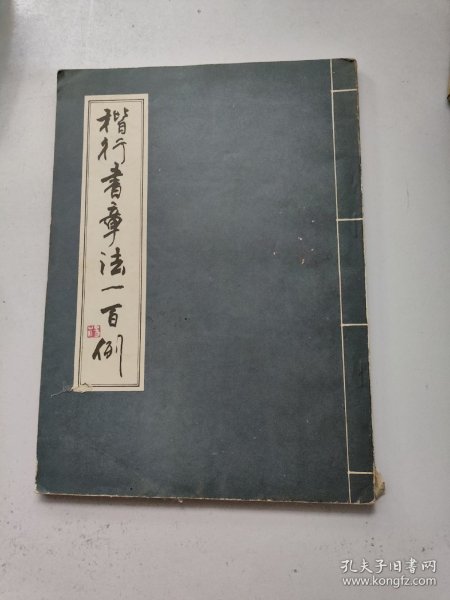 楷行書章法一百例
孔夫子旧书网
www.kongfz.com